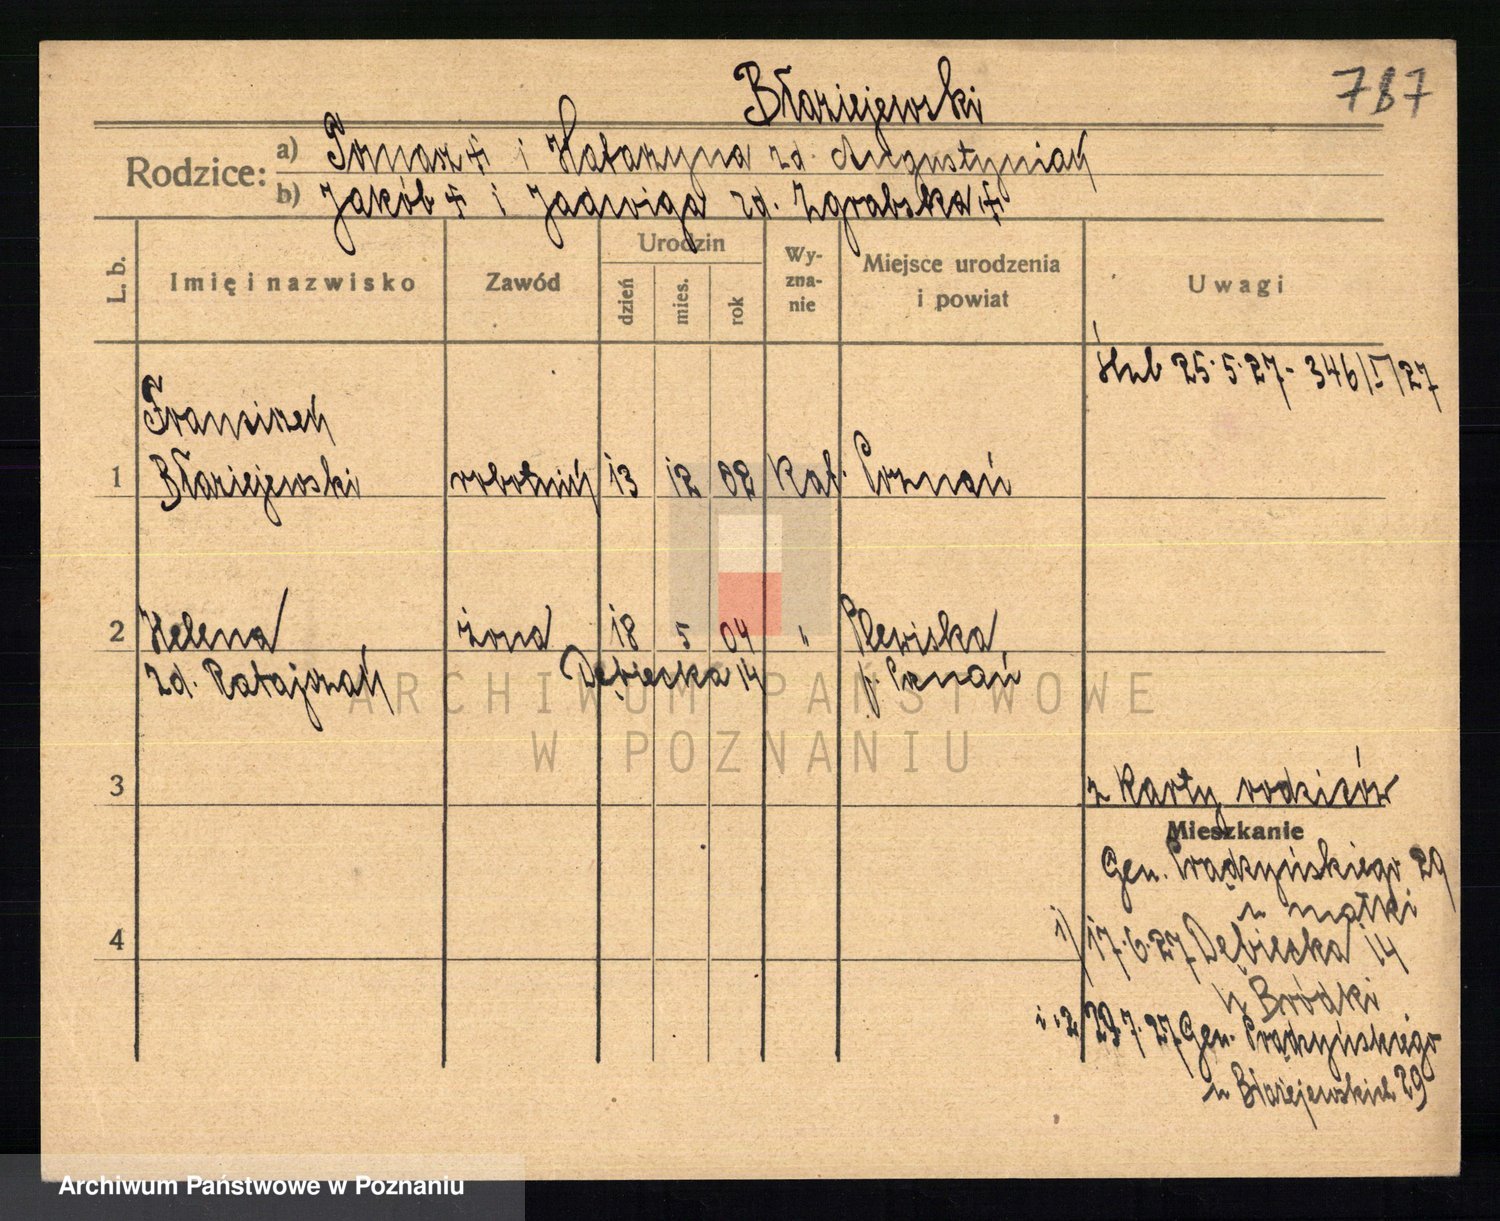 Błażejewski
787
Rodzice: a) Tomasz + i Katarzyna zd. Augustyniak
b) Jakób + i Jadwiga zd. Zgrabska +
L. b. Imię i nazwisko Zawód Urodzin dzień mies. rok Wyzna-nie Miejsce urodzenia i powiat Uwagi
Ślub 25.5.27 - 346/I/27
Franciszek
1 Błażejewski robotnik 13 12 02 kat. Poznań
2 Helena żona 18 5 04 " Plewiska
zd. Ratajczak Dębiecka 14 p. Poznań
ARCHIWUM PAŃSTWOWE
W POZNANIU
3 z karty rodziców
Mieszkanie
Gen. Prądzyńskiego 29
u matki
4 1) 17.6.27 Dębiecka 14
u Bródki
i 2 29.7.27 Gen. Prądzyńskiego
u Błażejewskich 29
Archiwum Państwowe w Poznaniu